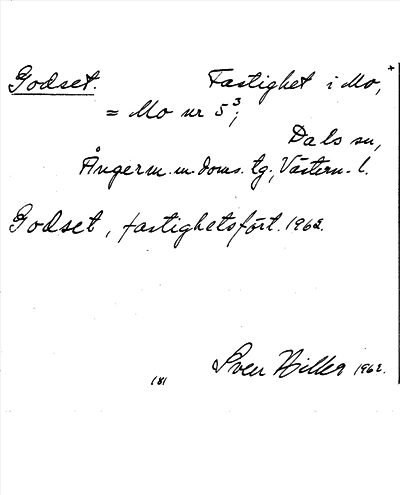 Godset. Fastighet i Mo,+
= Mo nr 5³;
Dals sn,
Ångerm. m. doms. tg., Västern. l.
Godset, fastighetsfört. 1962.
Sven Hiller 1962.
181